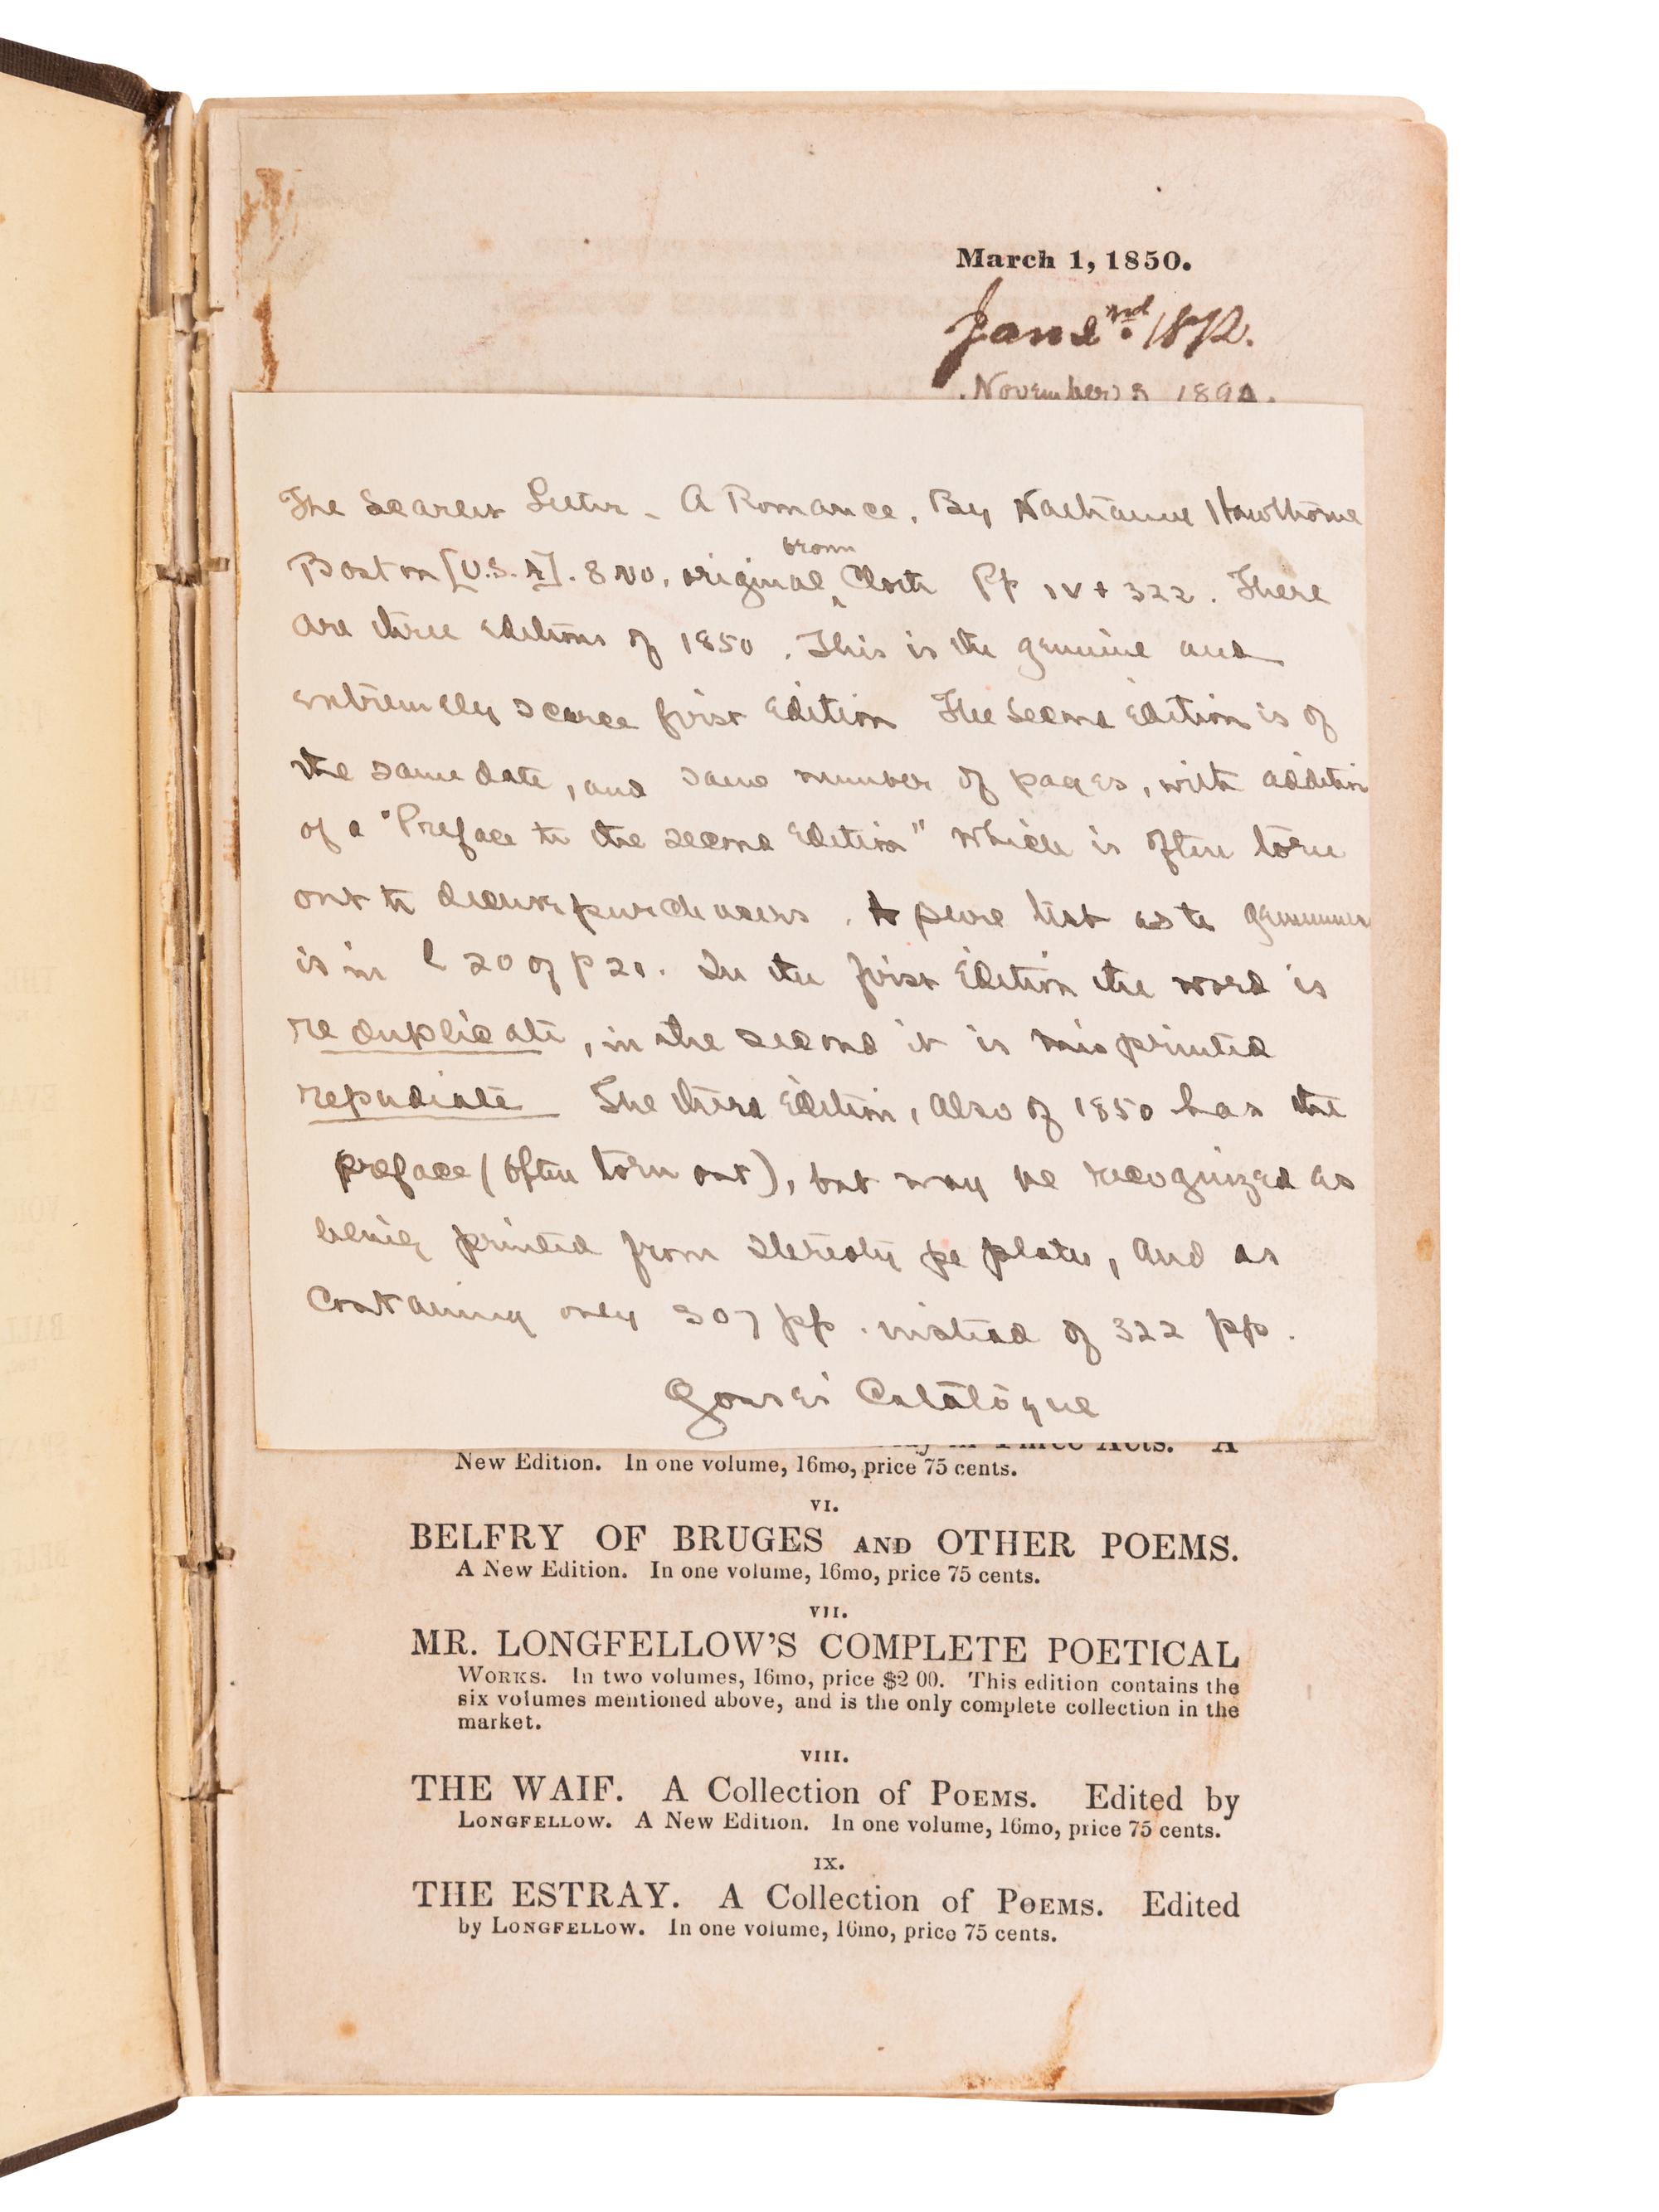 March 1, 1850.
Jan 2nd. 1872.
November 3 189
The Scarlet Letter - A Romance. By Nathaniel Hawthorne
Boston [U.S.A]. 8vo, original brown Cloth Pp iv + 322. There
are three editions of 1850. This is the genuine and
extremely scarce first Edition The Second Edition is of
the same date, and same number of pages, with addition
of a "Preface to the second Edition" which is often torn
out to deceive purchasers. A sure test as to genuineness
is in l 20 of p 21. In the first Edition the word is
reduplicate, in the second it is misprinted
repudiate The third Edition, also of 1850 has the
preface (often torn out), but may be recognized as
being printed from stereotype plates, and as
containing only 307 pp. instead of 322 pp.
Catalogue
in Three Acts. A
New Edition. In one volume, 16mo, price 75 cents.
VI.
BELFRY OF BRUGES AND OTHER POEMS.
A New Edition. In one volume, 16mo, price 75 cents.
VII.
MR. LONGFELLOW'S COMPLETE POETICAL
WORKS. In two volumes, 16mo, price $2 00. This edition contains the
six volumes mentioned above, and is the only complete collection in the
market.
VIII.
THE WAIF. A Collection of POEMS. Edited by
LONGFELLOW. A New Edition. In one volume, 16mo, price 75 cents.
IX.
THE ESTRAY. A Collection of POEMS. Edited
by LONGFELLOW. In one volume, 16mo, price 75 cents.